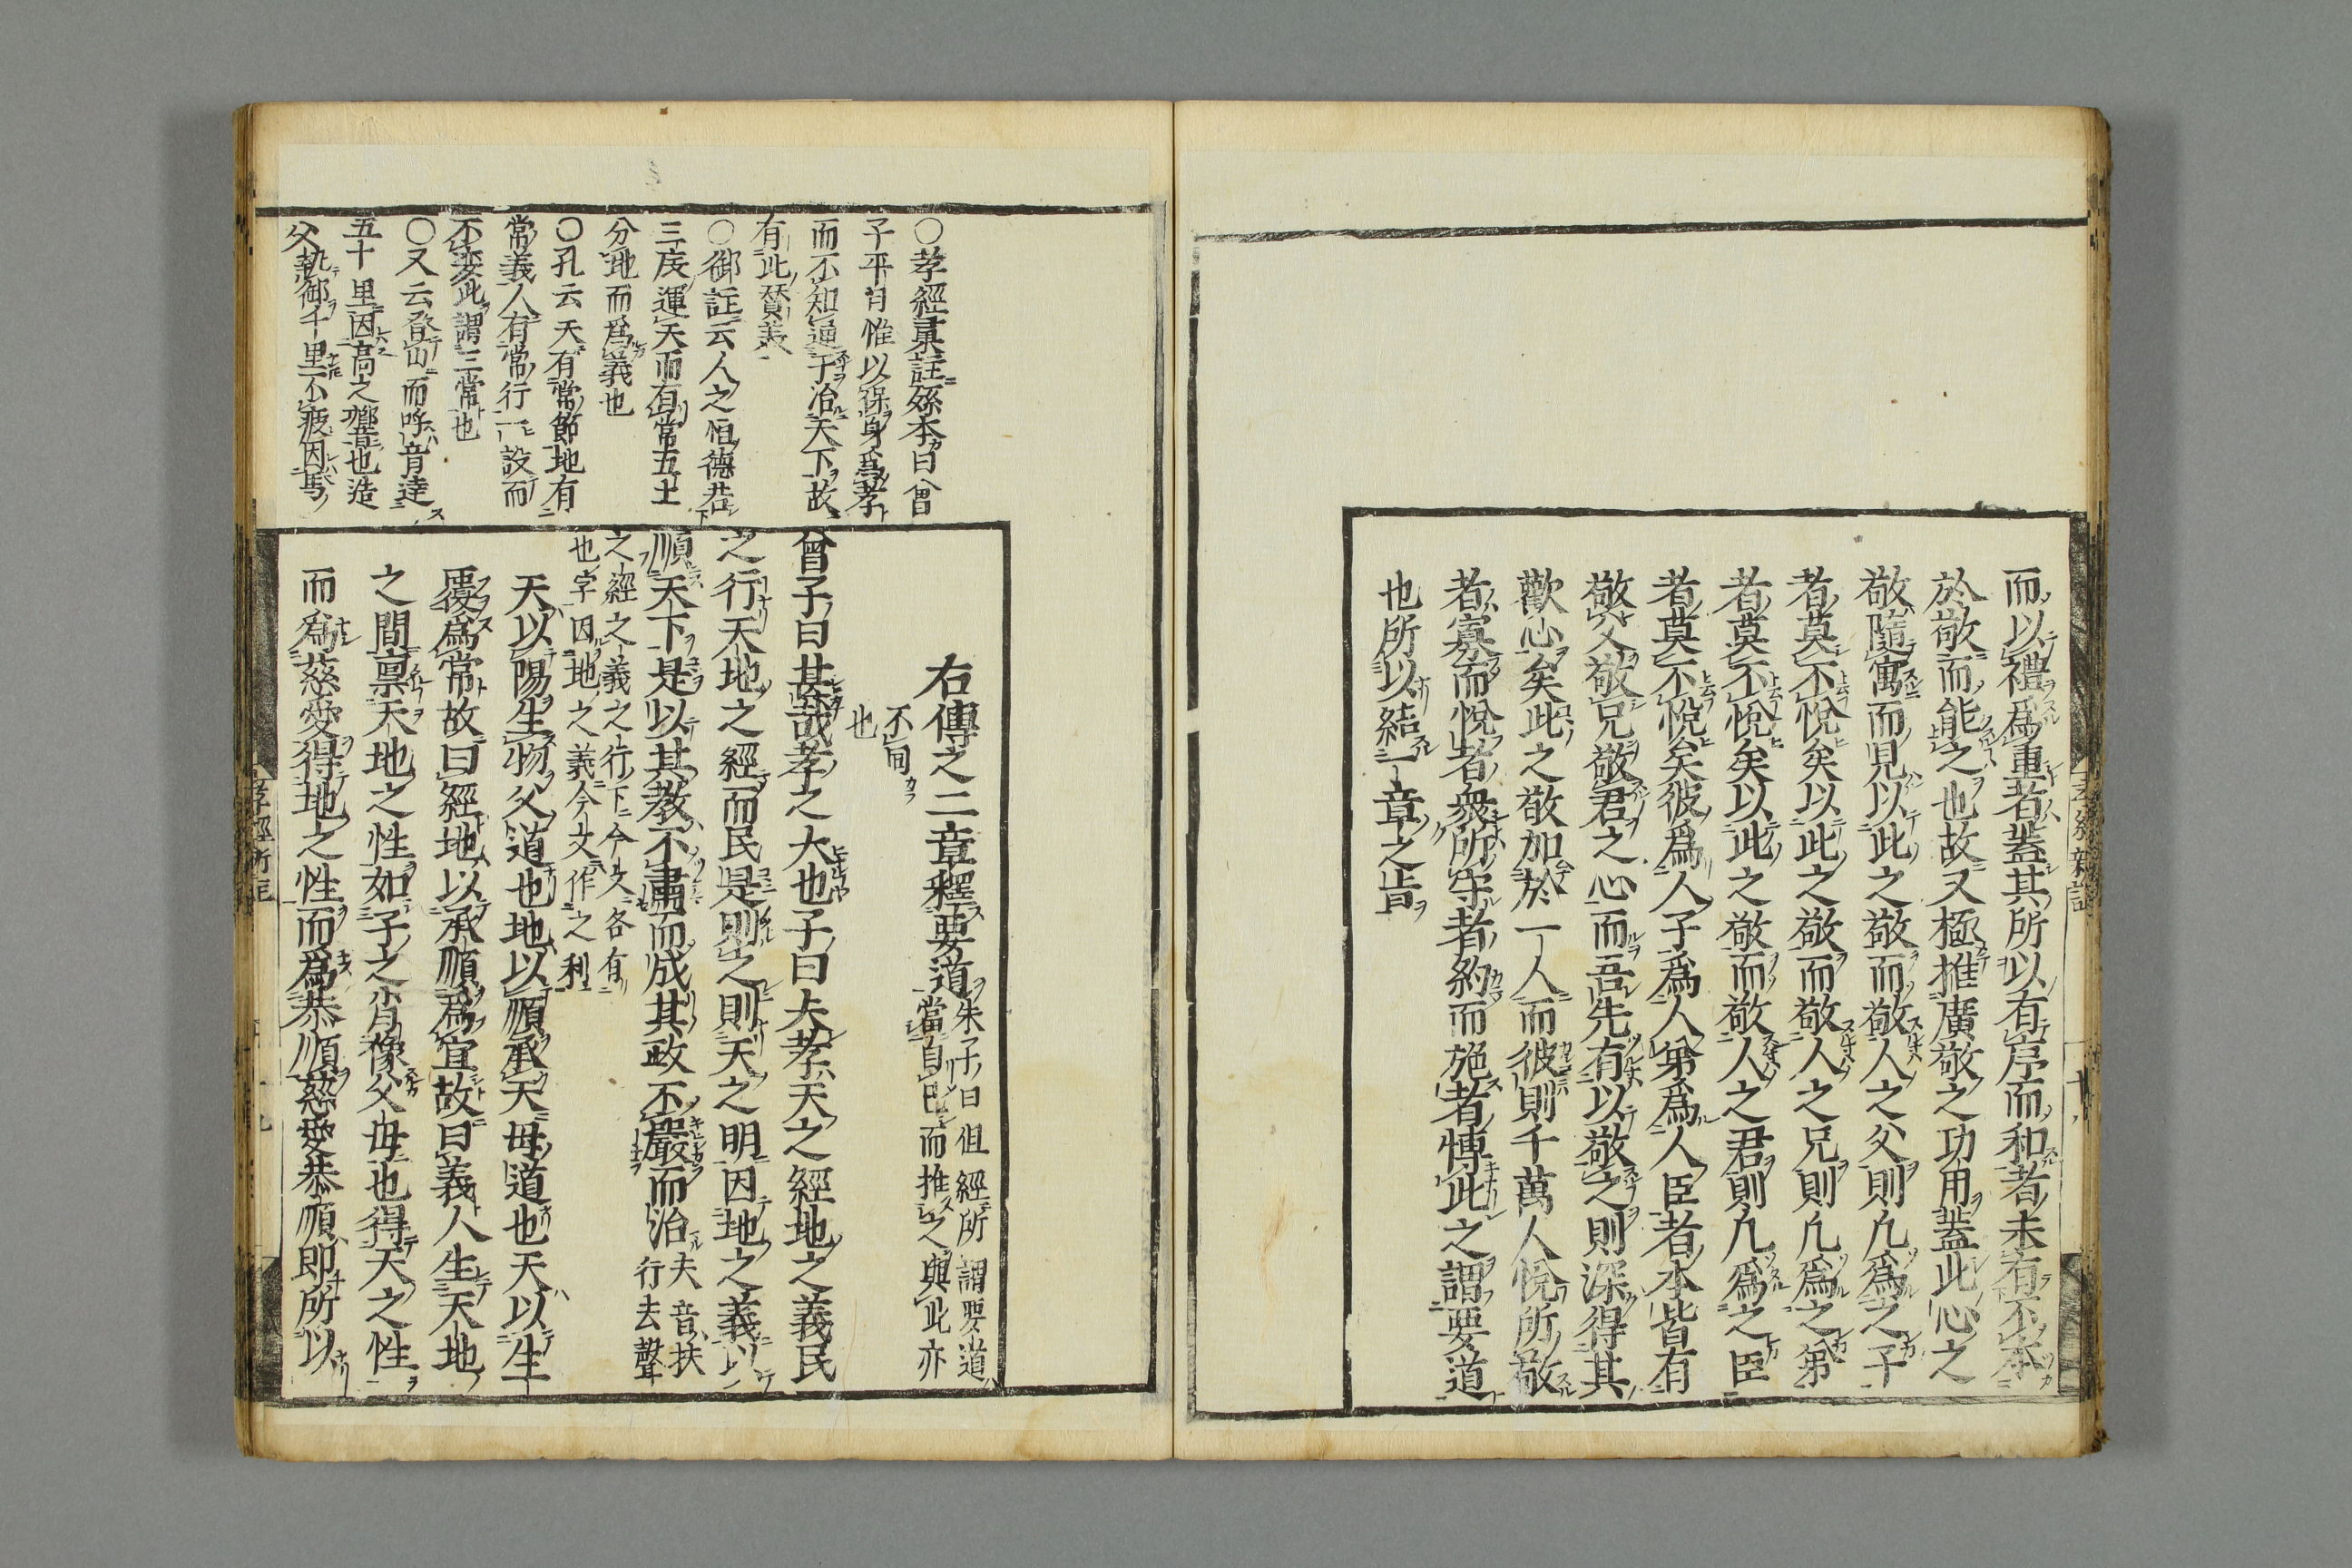 而以禮爲重者蓋其所以有序而和者未有不本
於敬而能之也故又極推廣敬之功用蓋此心之
敬隨寓而見以此之敬而敬人之父則凢爲之子
者莫不悅矣以此之敬而敬人之兄則凢爲之弟
者莫不悅矣以此之敬而敬人之君則凢爲之臣
者莫不悅矣彼爲人子爲人弟爲人臣者本皆有
敬父敬兄敬君之心而吾先有以敬之則深得其
歡心矣此之敬加於一人而彼則千萬人悅所敬
者寡而悅者衆所守者約而施者博此之謂要道
也所以結一章之旨
〇孝經彙註孫本曰曾
子平日惟以保身爲孝
而不知通于治天下故
有此賛義
〇御註云人之恒德若
三辰運天而有常五土
分地而爲義也
〇孔云天有常節地有
常義人有常行一設而
不変此謂三常也
〇又云登山而呼音達
五十里因高之響也造
父執御千里不疲因馬
右傳之二章釋要道
朱子曰但經所謂要道
當自己而推之與此亦
不同
也
曾子曰甚哉孝之大也子曰夫孝天之經地之義民
之行天地之經而民是則之則天之明因地之義以
順天下是以其教不肅而成其政不嚴而治
夫音扶
行去聲
之經之義之行下今文各有
也字因地之義今文作之利
天以陽生物父道也地以順承天母道也天以生
覆爲常故曰經地以承順爲宜故曰義人生天地
之間禀天地之性如子之肖像父母也得天之性
而爲慈愛得地之性而爲恭順慈愛恭順即所以